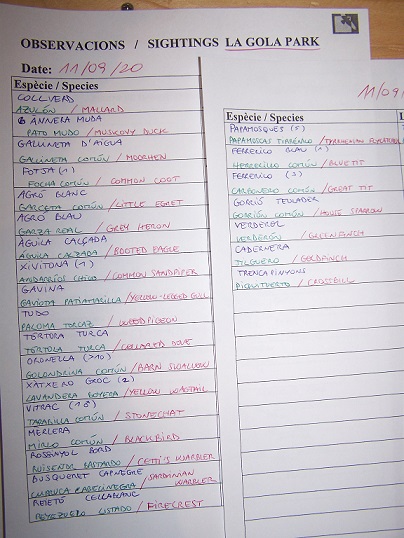 OBSERVACIONS / SIGHTINGS LA GOLA PARK
Date: 11/09/20
Espècie / Species
COLLVERD
AZULÓN / MALLARD
6 ANNERA MUDA
PATO MUDO / MUSCOVY DUCK
GALLINETA D'AIGUA
GALLINETA COMÚN / MOORHEN
FOTJA (1)
FOCHA COMÚN / COMMON COOT
AGRÓ BLANC
GARCETA COMÚN / LITTLE EGRET
AGRÓ BLAU
GARZA REAL / GREY HERON
ÀGUILA CALÇADA
ÁGUILA CALZADA / BOOTED EAGLE
XIVITONA (1)
ANDARRÍOS CHICO / COMMON SANDPIPER
GAVINA
GAVIOTA PATIAMARILLA / YELLOW-LEGGED GULL
TUDO
PALOMA TORCAZ / WOODPIGEON
TÓRTORA TURCA
TÓRTOLA TURCA / COLLARED DOVE
ORONELLA (>10)
GOLONDRINA COMÚN / BARN SWALLOW
XÀTXERO GROC (2)
LAVANDERA BOYERA / YELLOW WAGTAIL
VITRAC (1♀)
TARABILLA COMÚN / STONECHAT
MERLERA
MIRLO COMÚN / BLACKBIRD
ROSSINYOL BORD
RUISEÑOR BASTARDO / CETTI'S WARBLER
BUSQUERET CAPNEGRE
CURRUCA CABECINEGRA / SARDINIAN WARBLER
REIETÓ CELLABLANC
REYEZUELO LISTADO / FIRECREST
11/09/
Espècie / Species
PAPAMOSQUES (5)
PAPAMOSCAS TIRRÉNICO / TYRRHENIAN FLYCATCHER
FERRERICO BLAU (1)
HERRERILLO COMÚN / BLUE TIT
FERRERICO (3)
CARBONERO COMÚN / GREAT TIT
GORRIÓ TEULADER
GORRIÓN COMÚN / HOUSE SPARROW
VERDEROL
VERDERÓN / GREENFINCH
CADERNERA
JILGUERO / GOLDFINCH
TRENCAPINYONS
PIQUITUERTO / CROSSBILL